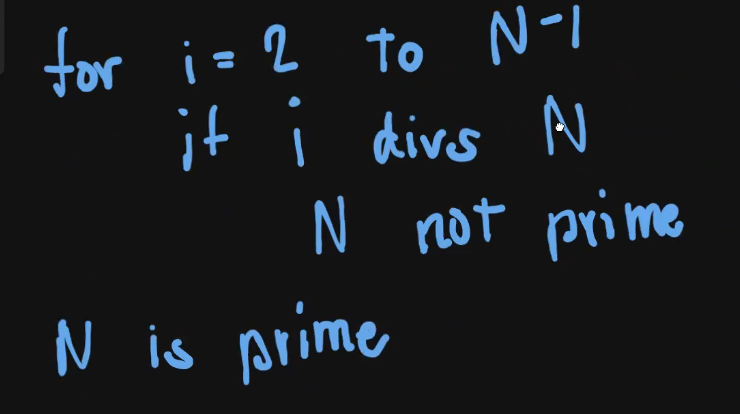 for i = 2 to N-1
if i divs N
N not prime
N is prime